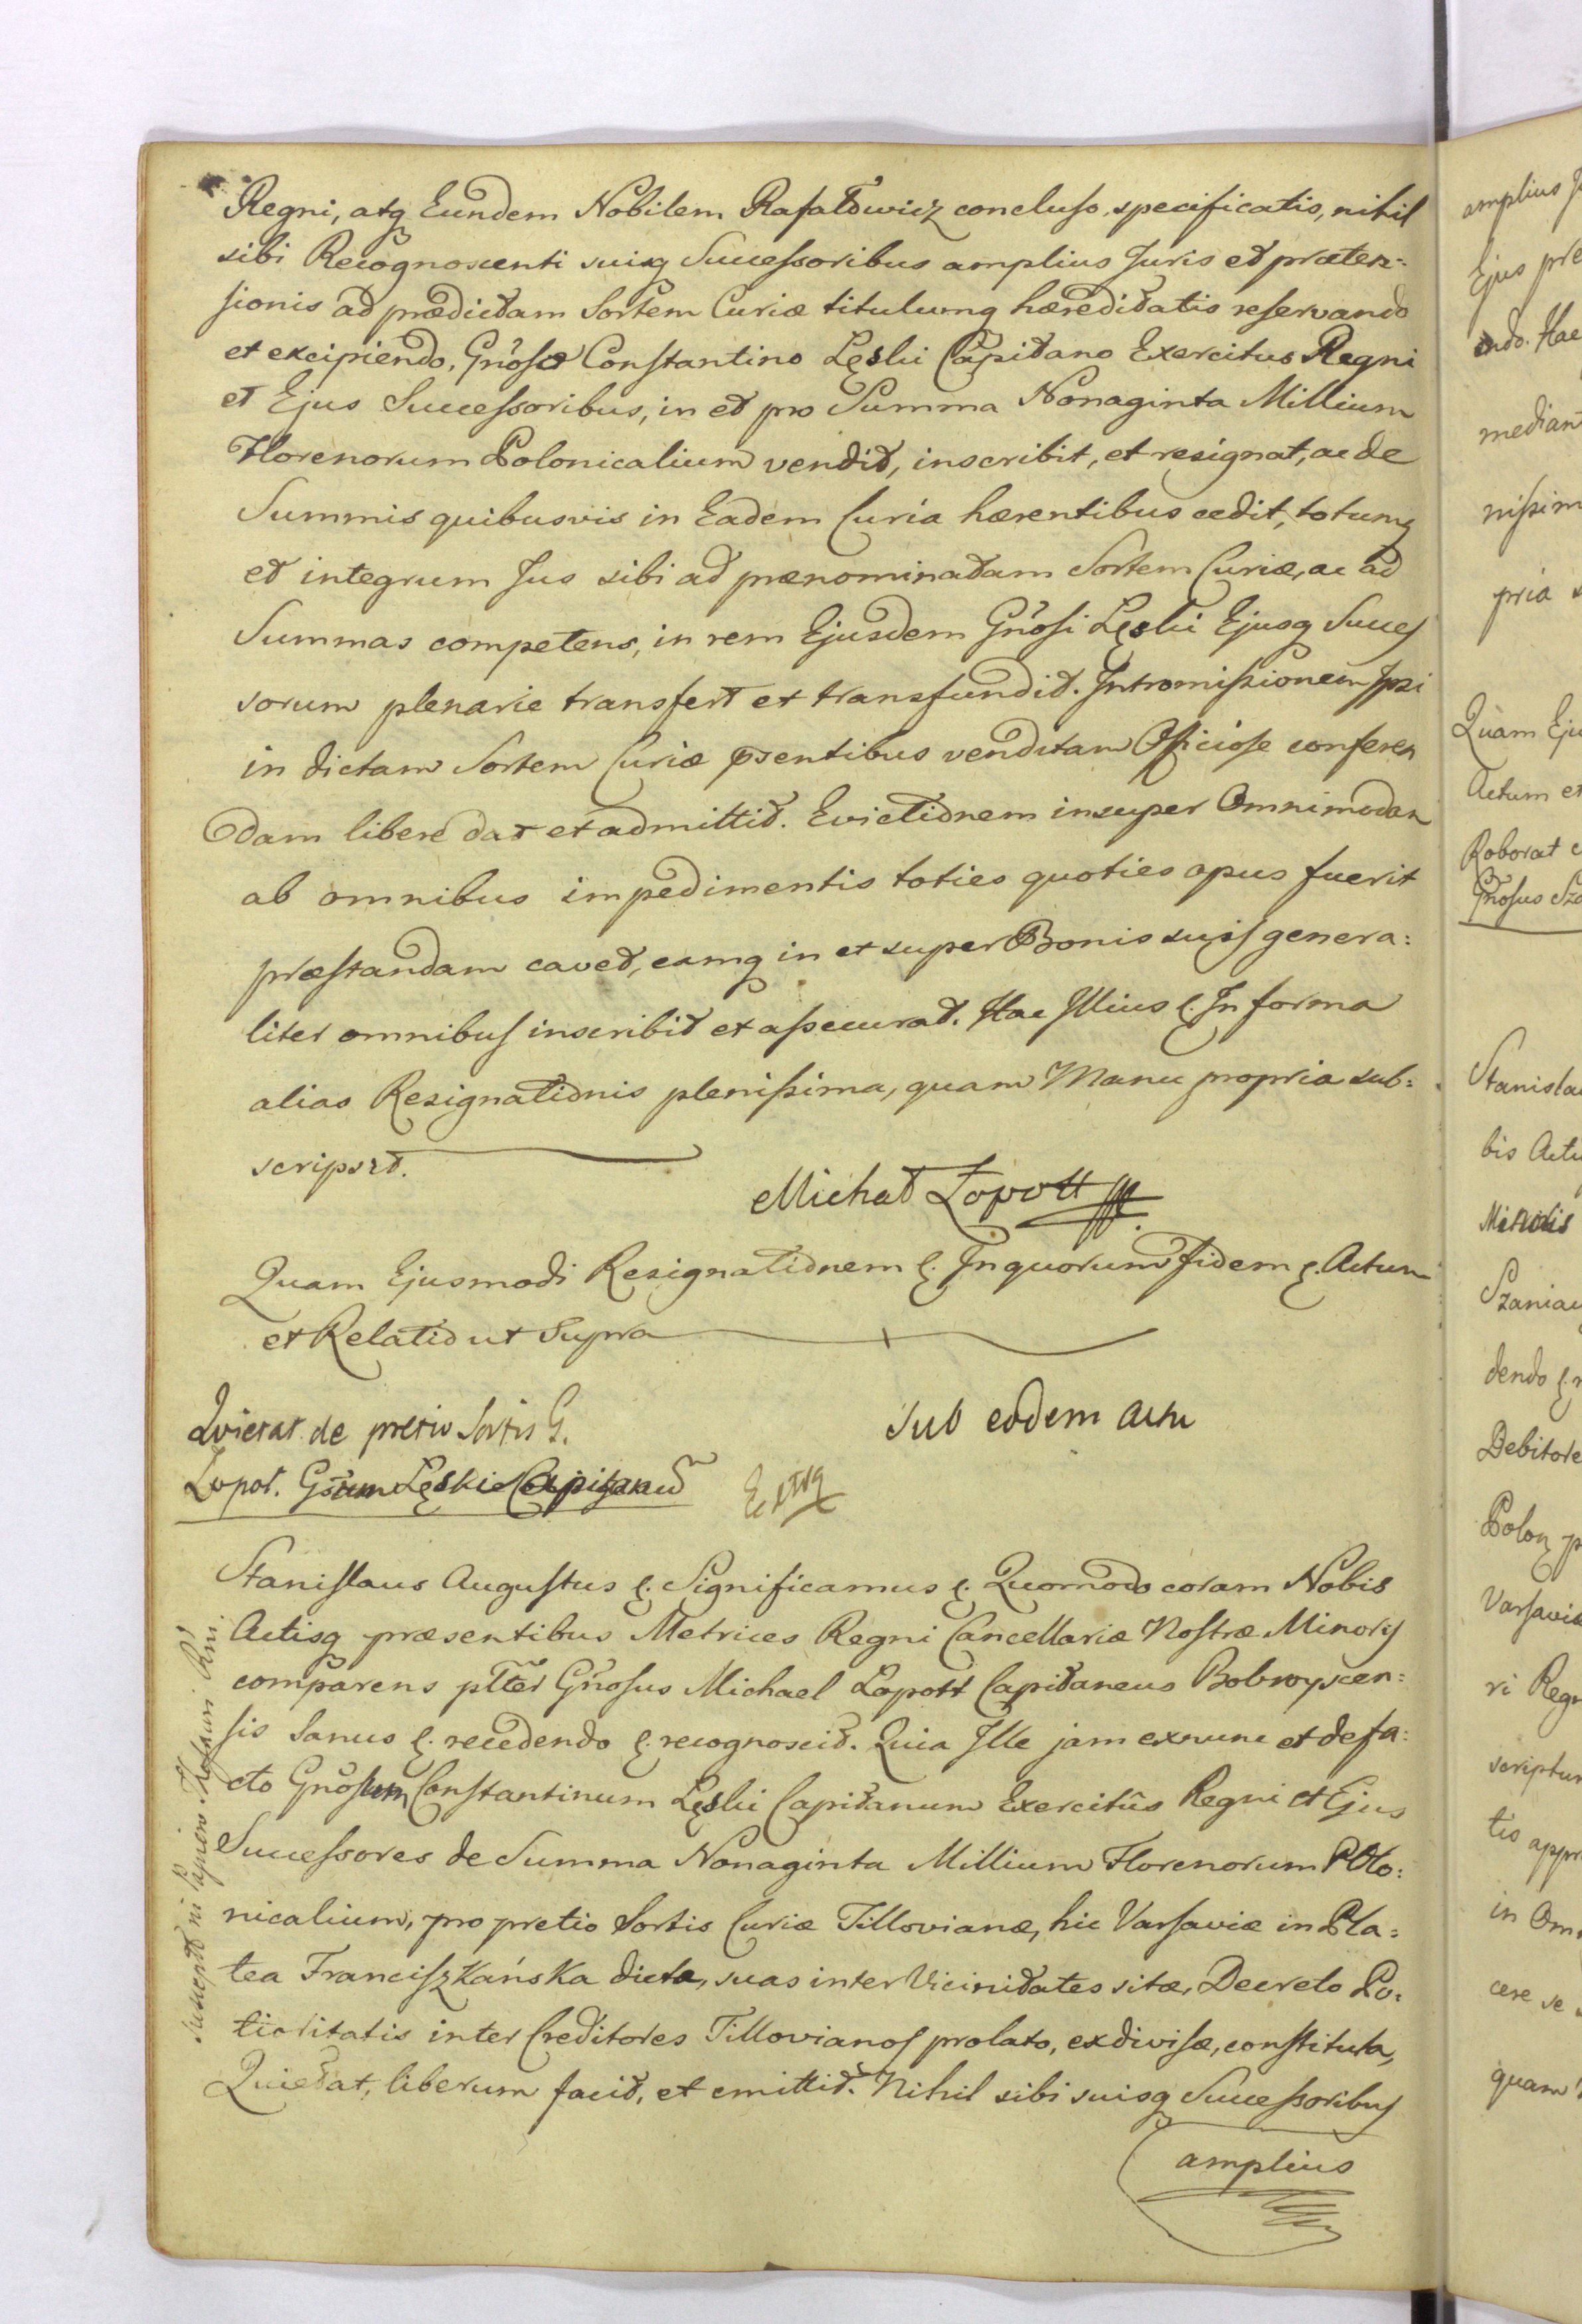 Regni, atq Eundem Nobilem Rafałowicz concluso, specificatis, nihil
sibi Recognoscenti suisq Successoribus amplius Juris et præten-
sionis ad prædictam Sortem Curiæ titulumq hæreditatis reservando
et excipiendo, Gnoso Constantino Łęski Capitano Exercitus Regni
et Ejus Successoribus, in et pro Summa Nonaginta Millium
Florenorum Polonicalium vendit, inscribit, et resignat, ac de
Summis quibusvis in Eadem Curia hærentibus cedit, totumq
et integrum Jus sibi ad prænominatam Sortem Curiæ, ac ad
Summas competens, in rem Ejusdem Gnosi Łęski Ejusq Succes
sorum plenarie transfert et transfundit. Intromissionem Ipsi
in dictam Sortem Curiæ psentibus venditam Officiose conferen
dam libere dat et admittit. Evictionem insuper Omnimodam
ab omnibus impedimentis toties quoties opus fuerit
præstandam cavet, eamq in et super Bonis suis genera:
liter omnibus inscribit et assecurat. Hac Illius &. In forma
alias Resignationis plenissima, quam Manu propria sub:
scripsit.
Michał Łopott
Quam Ejusmodi Resignationem &. In quorum fidem &. Actum
et Relatio ut Supra
Quietat de pretio Sortis G.
Sub eodem Actu
Łopot. Gsum Łęski Capitaneu
Extr
Stanislaus Augustus &. Significamus &. Quomodo coram Nobis
Actisq præsentibus Metrices Regni Cancellariæ Nostræ Minoris
comparens plter Gnosus Michael Łopott Capitaneus Bobroyscen:
sis Sanus &. recedendo &. recognoscit. Quia Ille jam exnunc et de fa:
cto Gnosum Constantinum Łęski Capitanum Exercitûs Regni et Ejus
Successores de Summa Nonaginta Millium Florenorum Polo:
nicalium, pro pretio Sortis Curiæ Tillovianæ, hic Varsaviæ in Pla:
tea Franciszkańska dicta, suas inter Vicinitates sitæ, Decreto Po:
tioritatis inter Creditores Tillovianos prolato, exdivisæ, constituta,
Quietat, liberum facit, et emittit. Nihil sibi suisq Successoribus
amplius